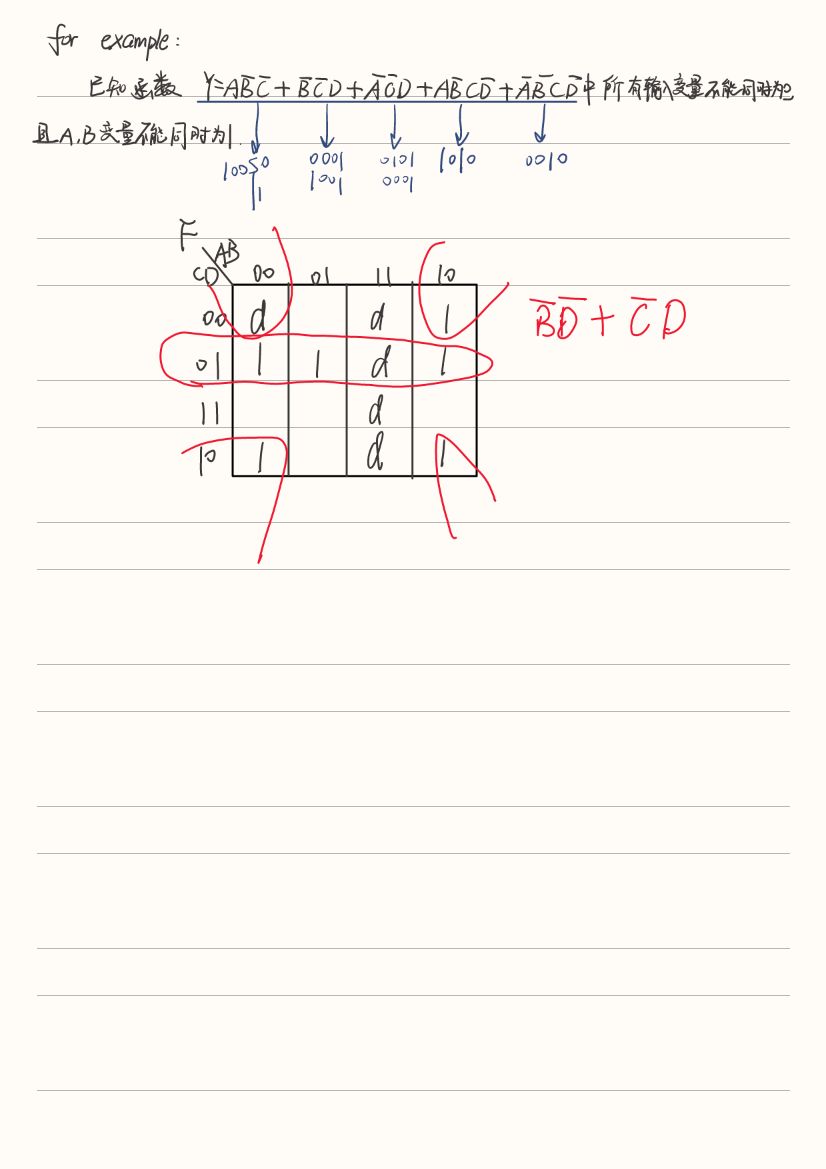 for example:
已知函数 Y=AB̅C̅ + B̅C̅D + A̅C̅D + AB̅CD̅ + A̅B̅CD̅ 中所有输入变量不能同时为0
且A,B变量不能同时为1.
100 0 0001 0101 1010 0010
1 1001 0001
F
AB
CD 00 01 11 10
00 d d 1
01 1 1 d 1
11 d
10 1 d 1
B̅D̅ + C̅D